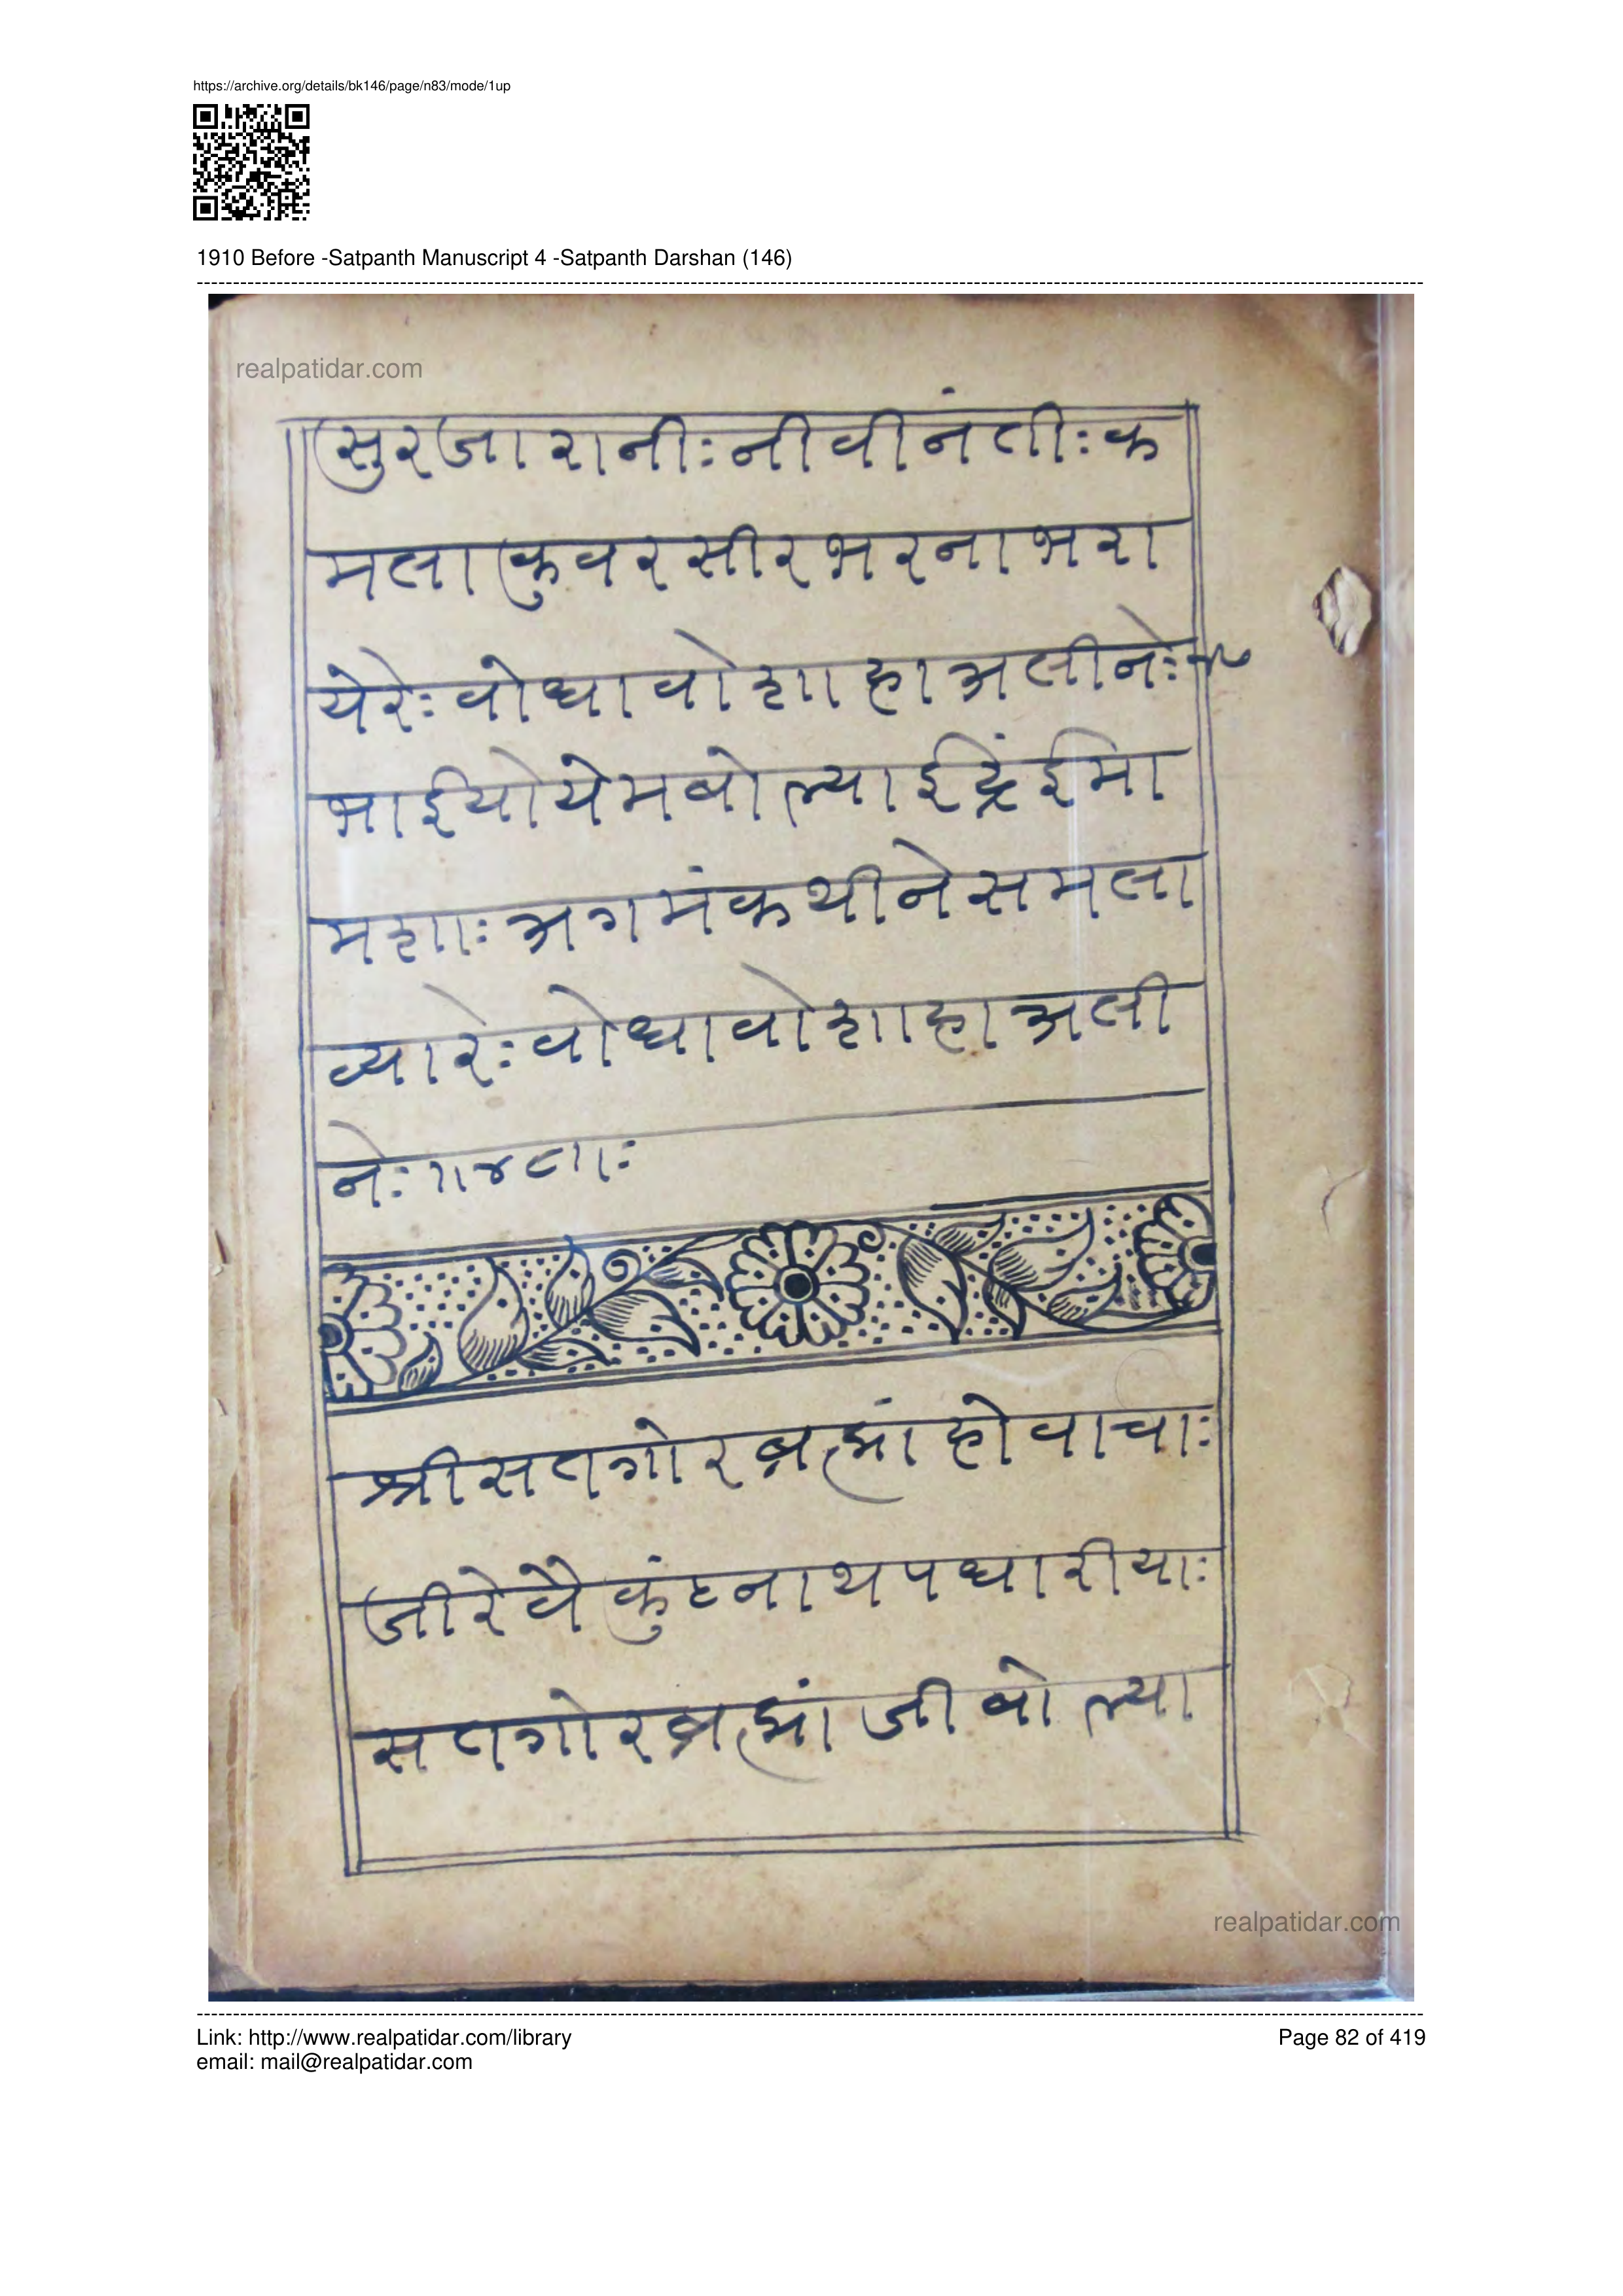 https://archive.org/details/bk146/page/n83/mode/1up
1910 Before -Satpanth Manuscript 4 -Satpanth Darshan (146)
realpatidar.com
सुरजारानीः नीवीनंतीः क
मलाकुवरसीरभरनाभरा
येरेः वोधावोशाहाअलीनेः
भाईयोयेमबोल्याईद्रिंईमा
मशाः अगमंकथीनेसमला
व्यारेः वोधावोशाहाअली
नेः
श्रीसतगोरब्रह्मांहोवाचाः
जीरेवैकुंठनाथपधारीयाः
सतगोरब्रह्मांजीबोल्या
realpatidar.com
Link: http://www.realpatidar.com/library
Page 82 of 419
email: mail@realpatidar.com